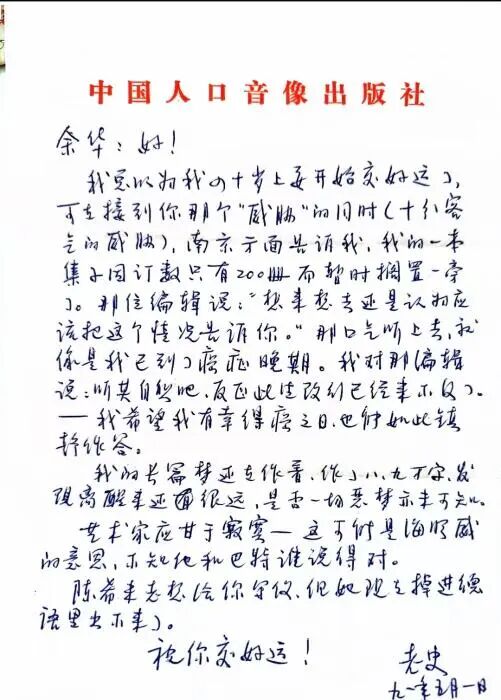 中国人口音像出版社
余华：好！
我总以为我四十岁上要开始交好运了，
可在接到你那个“威胁”的同时（十分客
气的威胁），南京方面告诉我，我的一本
集子因订数只有200册而暂时搁置一旁
了。那位编辑说：“想来想去还是认为应
该把这个情况告诉你。”那口气听上去，就
像是我已到了癌症晚期。我对那编辑
说：听其自然吧，反正此生改行已经来不及了。
——我希望我有幸得癌之日，也能如此镇
静作答。
我的长篇梦还在作着，作了八、九万字，发
现离醒来还很远，是否一切恶梦亦未可知。
艺术家应甘于寂寞——这可能是海明威
的意思，不知他和巴特谁说得对。
陈希米老想给你写信，但她现在掉进德
语里出不来了。
祝你交好运！
老史
九一年五月一日